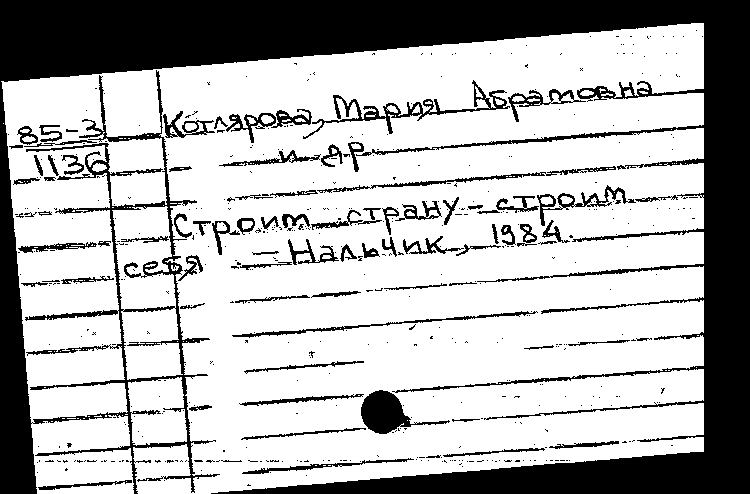 85-3
1136
Котлярова, Мария Абрамовна
и др
Строим страну - строим
себя, - Нальчик, 1984.